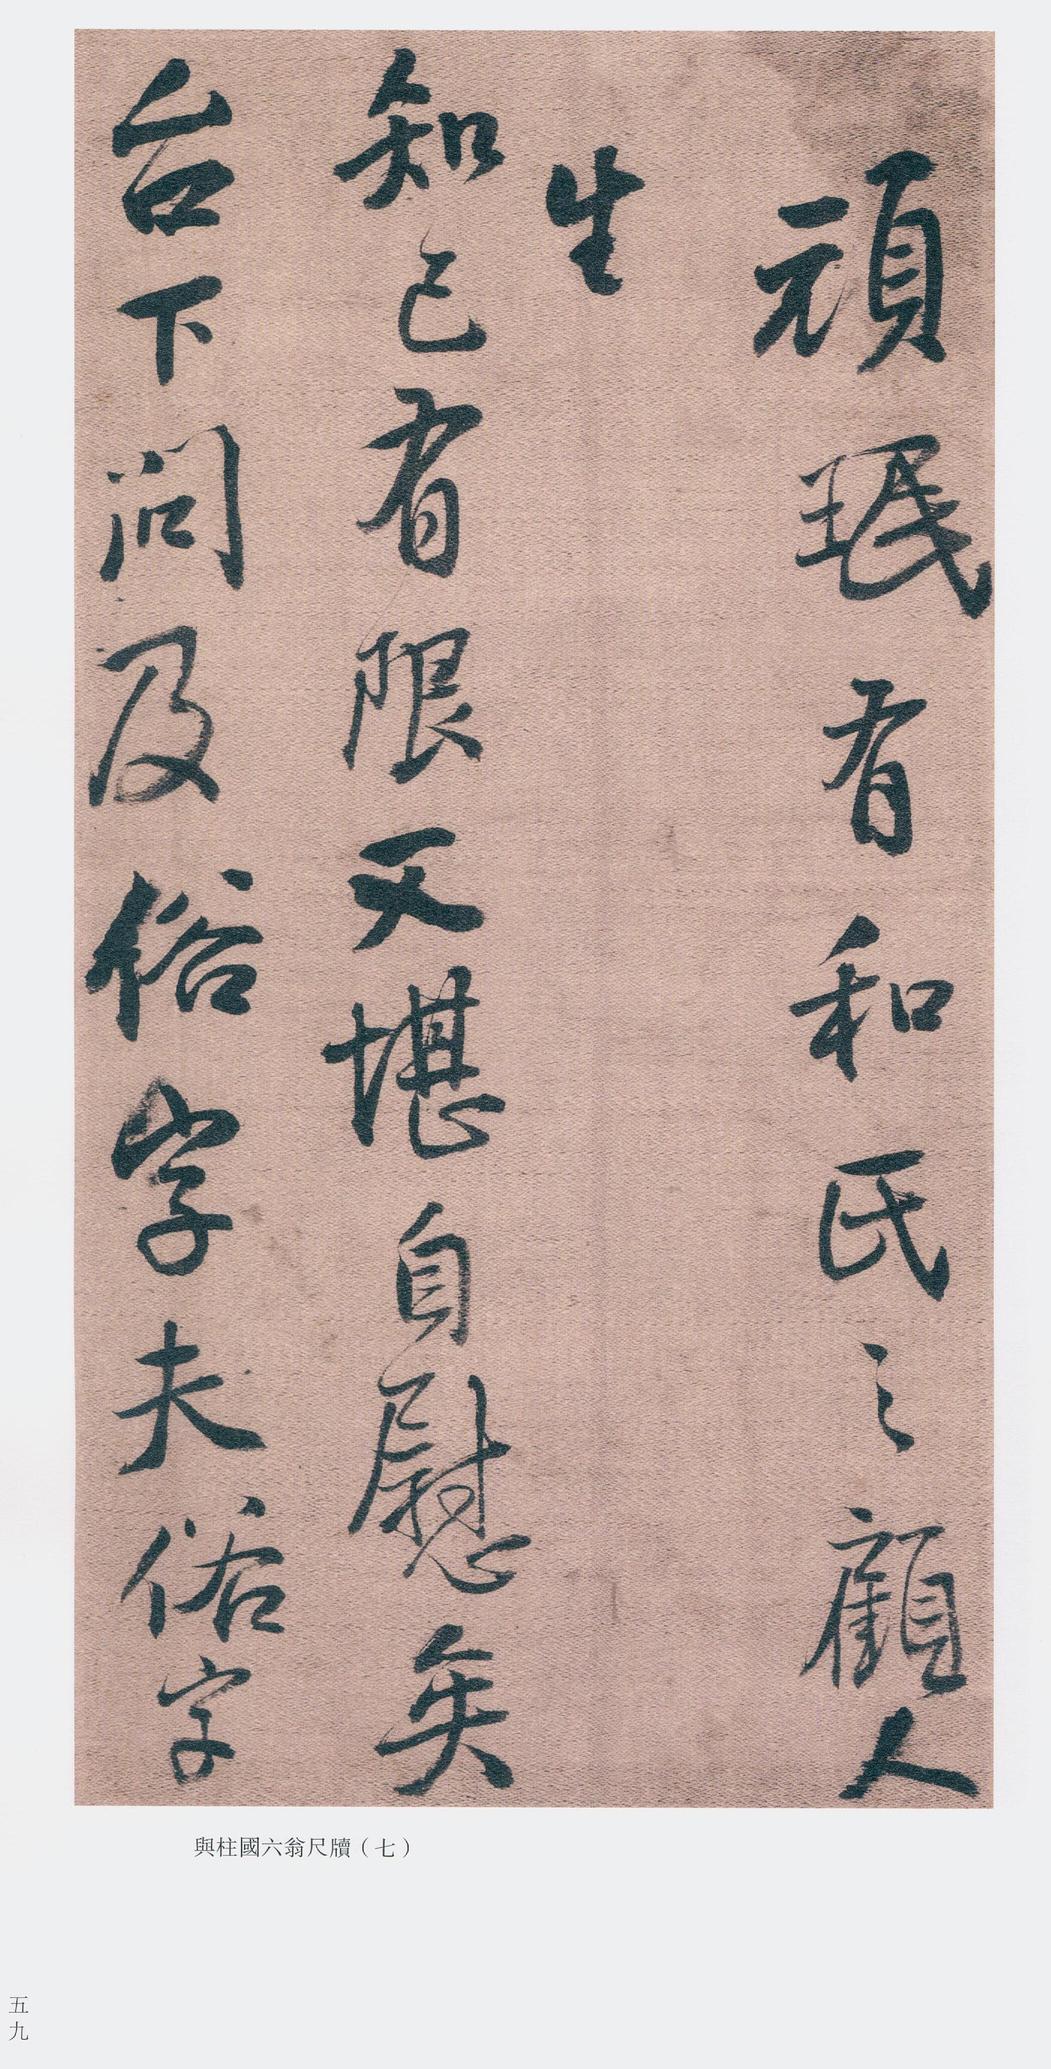 頑珉有和氏之顧人
生
知己有限又堪自慰矣
台下問及俗字夫俗字
與柱國六翁尺牘（七）
五九